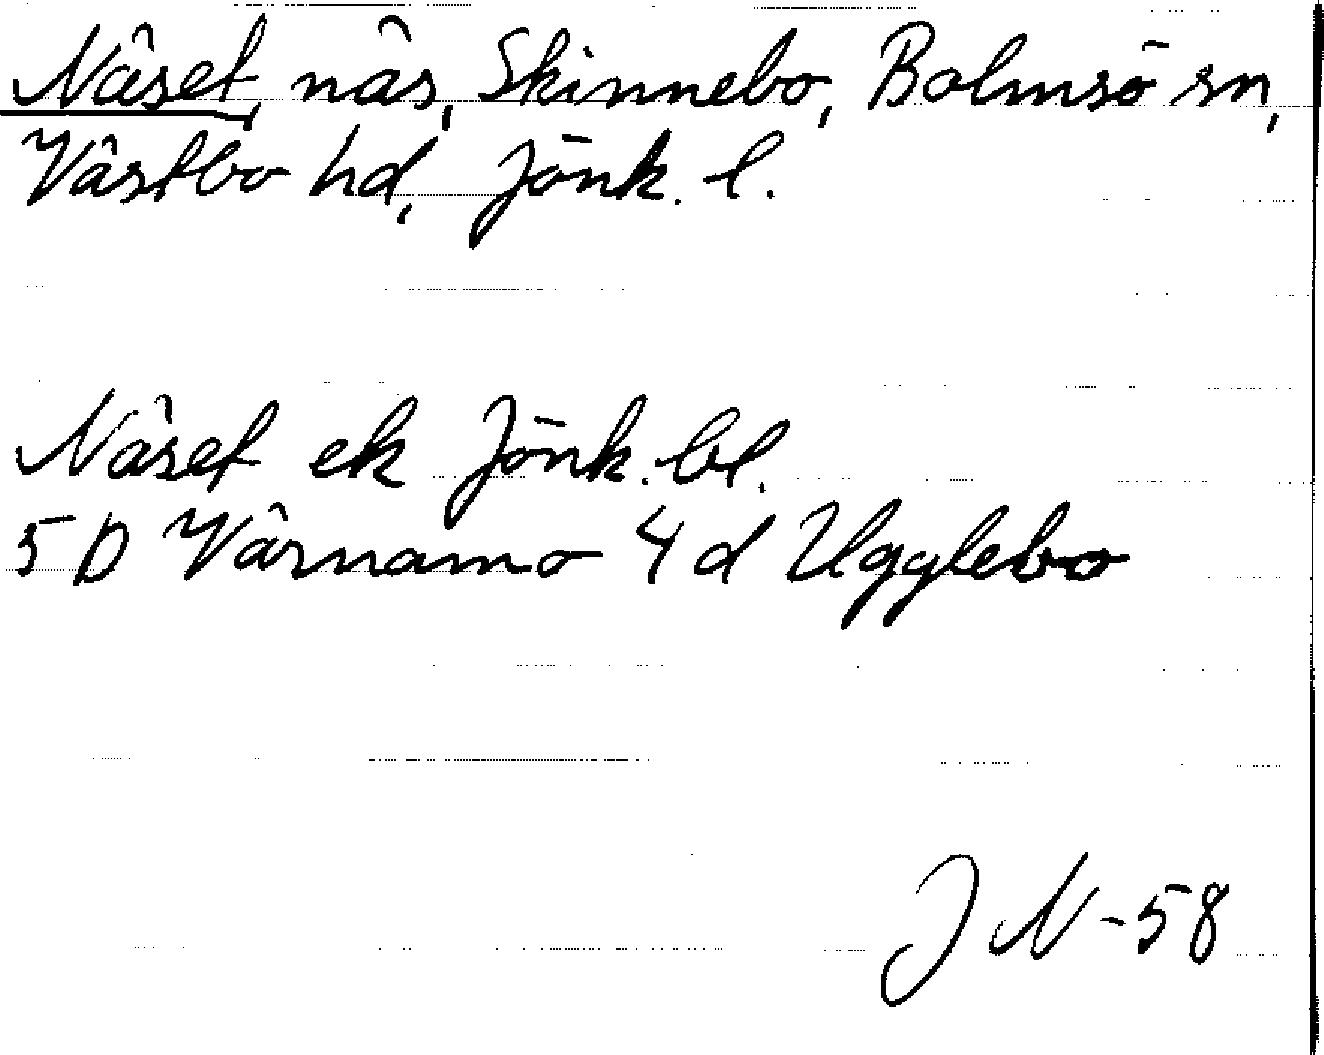 Näset, näs, Skinnebo, Bolmsö sn,
Västbo hd, Jönk. l.
Näset ek Jönk. bl.
5 D Värnamo 4 d Ugglebo
J N -58